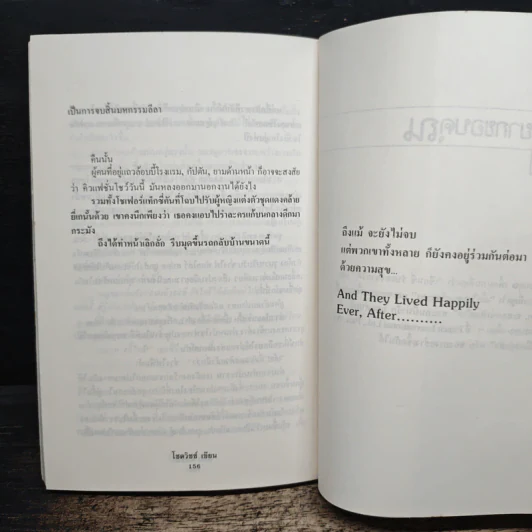 เป็นการจบสิ้นมหกรรมลีลา
คืนนั้น
ผู้คนที่อยู่แถวล็อบบี้โรงแรม, กัปตัน, ยามด้านหน้า ก็อาจจะสงสัย
ว่า คิวแฟชั่นโชว์วันนี้ มันหลงออกมานอกงานได้ยังไง
รวมทั้งโชเฟอร์แท็กซี่คันที่โฉบไปรับผู้หญิงแต่งตัวชุดแดงคล้าย
ยี่เกนั้นด้วย เขาคงนึกเพียงว่า เธอคงแอบไปรำละครแก้บนกลางดึกมา
กระมัง
ถึงได้ทำหน้าเลิกลั่ก รีบมุดขึ้นรถกลับบ้านขนาดนี้
โชตวิชช์ เขียน
156
ถึงแม้ จะยังไม่จบ
แต่พวกเขาทั้งหลาย ก็ยังคงอยู่ร่วมกันต่อมา
ด้วยความสุข...
And They Lived Happily
Ever, After..........